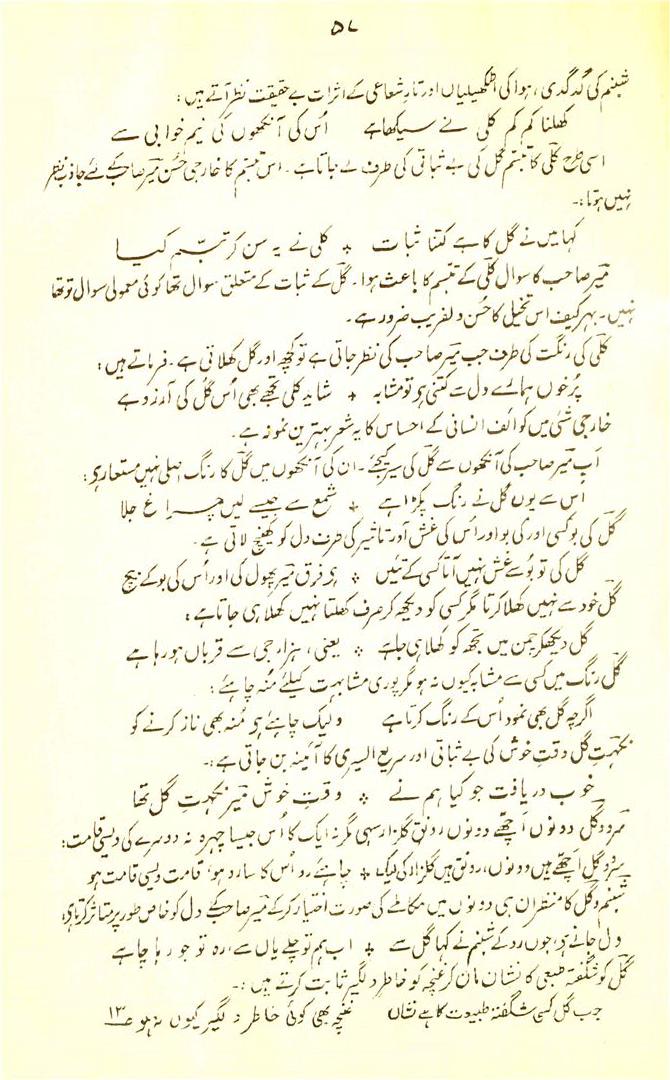 ۵۷
شبنم کی گدگدی، ہوا کی اٹکھیلیاں اور تارِ شعاعی کے اثرات بے حقیقت نظر آتے ہیں:
کھلنا کم کم کلی نے سیکھا ہے اُس کی آنکھوں کی نیم خوابی سے
اسی طرح کلی کا تبسّم گل کی بے ثباتی کی طرف لے جاتا ہے۔ اس تبسّم کا خارجی حُسن میر صاحب کے لئے جاذبِ نظر
نہیں ہوتا:۔
کہا میں نے گل کا ہے کتنا ثبات ٭ کلی نے یہ سن کر تبسّم کیا
میر صاحب کا سوال کلی کے تبسّم کا باعث ہوا۔ گل کے ثبات کے متعلق سوال تھا کوئی معمولی سوال تو تھا
نہیں۔ بہر کیف اس تخیل کا حُسن دلفریب ضرور ہے۔
کلی کی رنگت کی طرف جب میر صاحب کی نظر جاتی ہے تو کچھ اور گل کھلاتی ہے۔ فرماتے ہیں:
پُرخوں ہمارے دل سے کتنی ہے تو مشابہ ٭ شاید کلی تجھے بھی اُس گل کی آرزو ہے
خارجی شئی میں کوائف انسانی کے احساس کا یہ شعر بہترین نمونہ ہے۔
اب میر صاحب کی آنکھوں سے گل کی سیر کیجئے۔ ان کی آنکھوں میں گل کا رنگ اصلی نہیں مستعار ہے:
اس سے یوں گل نے رنگ پکڑا ہے ٭ شمع سے جیسے لیں چراغ جلا
گل کی بو کسی اور کی بو اور اُس کی غش آور تاثیر کی طرف دل کو کھینچ لاتی ہے۔
گل کی تو بُو سے غش نہیں آتا کسی کے تئیں ٭ ہے فرق میر پھول کی اور اُس کی بو کے بیچ
گل خود سے نہیں کھلا کرتا مگر کسی کو دیکھ کر صرف کھلتا نہیں کھلا ہی جاتا ہے:
گل دیکھکر چمن میں تجھ کو کھلا ہی جا ہے ٭ یعنی، ہزار جی سے قرباں ہو رہا ہے
گل رنگ میں کسی سے مشابہ کیوں نہ ہو مگر پوری مشابہت کیلئے مُنہ چاہئے:
اگرچہ گل بھی نمود اُس کے رنگ کرتا ہے ولیک چاہئے ہے مُنہ بھی ناز کرنے کو
نکہتِ گل وقتِ خوش کی بے ثباتی اور سریع السیری کا آئینہ بن جاتی ہے:۔
خوب دریافت جو کیا ہم نے ٭ وقتِ خوش میر نکہتِ گل تھا
سرو و گل دونوں اچھے دونوں رونق گلزار سہی مگر نہ ایک کا اُس جیسا چہرہ نہ دوسرے کی ویسی قامت:
سرو و گل اچھے ہیں دونوں، رونق ہیں گلزار کی لیک ٭ چاہئے رو اُس کا سا رو ہو، قامت ویسی قامت ہو
شبنم و گل کا منظر ان ہی دونوں میں مکالمے کی صورت اختیار کر کے میر صاحب کے دل کو خاص طور پر متاثر کرتا ہے:
دل جانے ہے، جوں رو کے شبنم نے کہا گل سے ٭ اب ہم تو چلے یاں سے، رہ تو جو رہا چاہے
گل کو شگفتہ طبعی کا نشان مان کر غنچہ کو خاطر دلگیر ثابت کرتے ہیں:۔
جب گل کسی شگفتہ طبیعت کا ہے نشاں غنچہ بھی کوئی خاطرِ دلگیر کیوں نہ ہو ۱۳